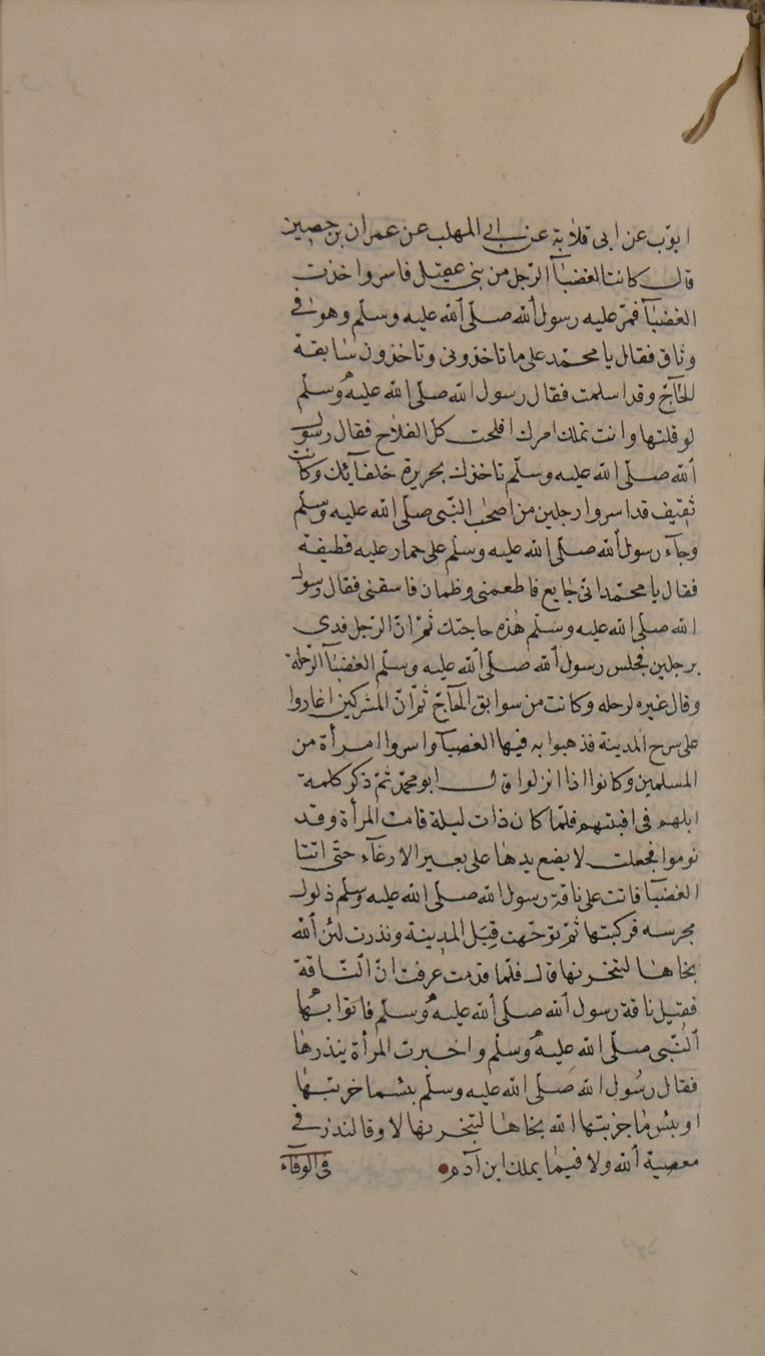 ايوّب عن ابى قلابة عن ابي المهلب عن عمران بن حصين
قال كانت العضبآ الرّجل من بنى عقيل فاسروا خذت
العضبآ فمرّ عليه رسول الله صلّى الله عليه وسلّم وهو في
وثاق فقال يا محمّد على ما تاخذونى وتاخذون سابقة
الحآجّ وقد اسلمت فقال رسول الله صلّى الله عليه وسلّم
لو قلتها وانت تملك امرك افلحت كل الفلاح فقال رسول
الله صلّى الله عليه وسلّم ناخذك بحريرة خلفآئك وكانت
ثقيف قد اسروا رجلين من اصحب النّبى صلّى الله عليه وسلّم
وجآء رسول الله صلّى الله عليه وسلّم على حمار عليه قطيفة
فقال يا محمّد انّى جايع فاطعمنى وظمان فاسقنى فقال رسول
الله صلّى الله عليه وسلّم هذه حاجتك ثمّ انّ الرّجل فدى
برجلين فحلس رسول الله صلّى الله عليه وسلّم العضبآ الرّحلة
وقال غيره لرحله وكانت من سوابق الحآجّ ثمّ انّ المشركين اغاروا
على سرح المدينة فذهبوا به فيها العضبآ واسروا امرأة من
المسلمين وكانوا اذا انزلوا قال ابو محمّد ثمّ ذكر كلمة
ابلهم فى افنيتهم فلمّا كان ذات ليلة قامت المرأة وقد
نوموا فجعلت لا يضع يدها على بعير الا رغآء حتّى اتتا
العضبآ فاتت على ناقة رسول الله صلّى الله عليه وسلّم ذلول
مجرسه فركبتها ثمّ توجّهت قِبَل المدينة ونذرت لئن الله
نجاها لتنحرنها قال فلمّا قدمت عرفت انّ النّاقة
فقيل ناقة رسول الله صلّى الله عليه وسلّم فاتوا بها
النّبى صلّى الله عليه وسلّم واخبرت المرأة بنذرها
فقال رسول الله صلّى الله عليه وسلّم بئسما جزيتها
او بئس ما جزيتها الله نجاها لتنحرنها لا وفا لنذر في
معصية الله ولا فيما يملك ابن آدم
فى الوفآء